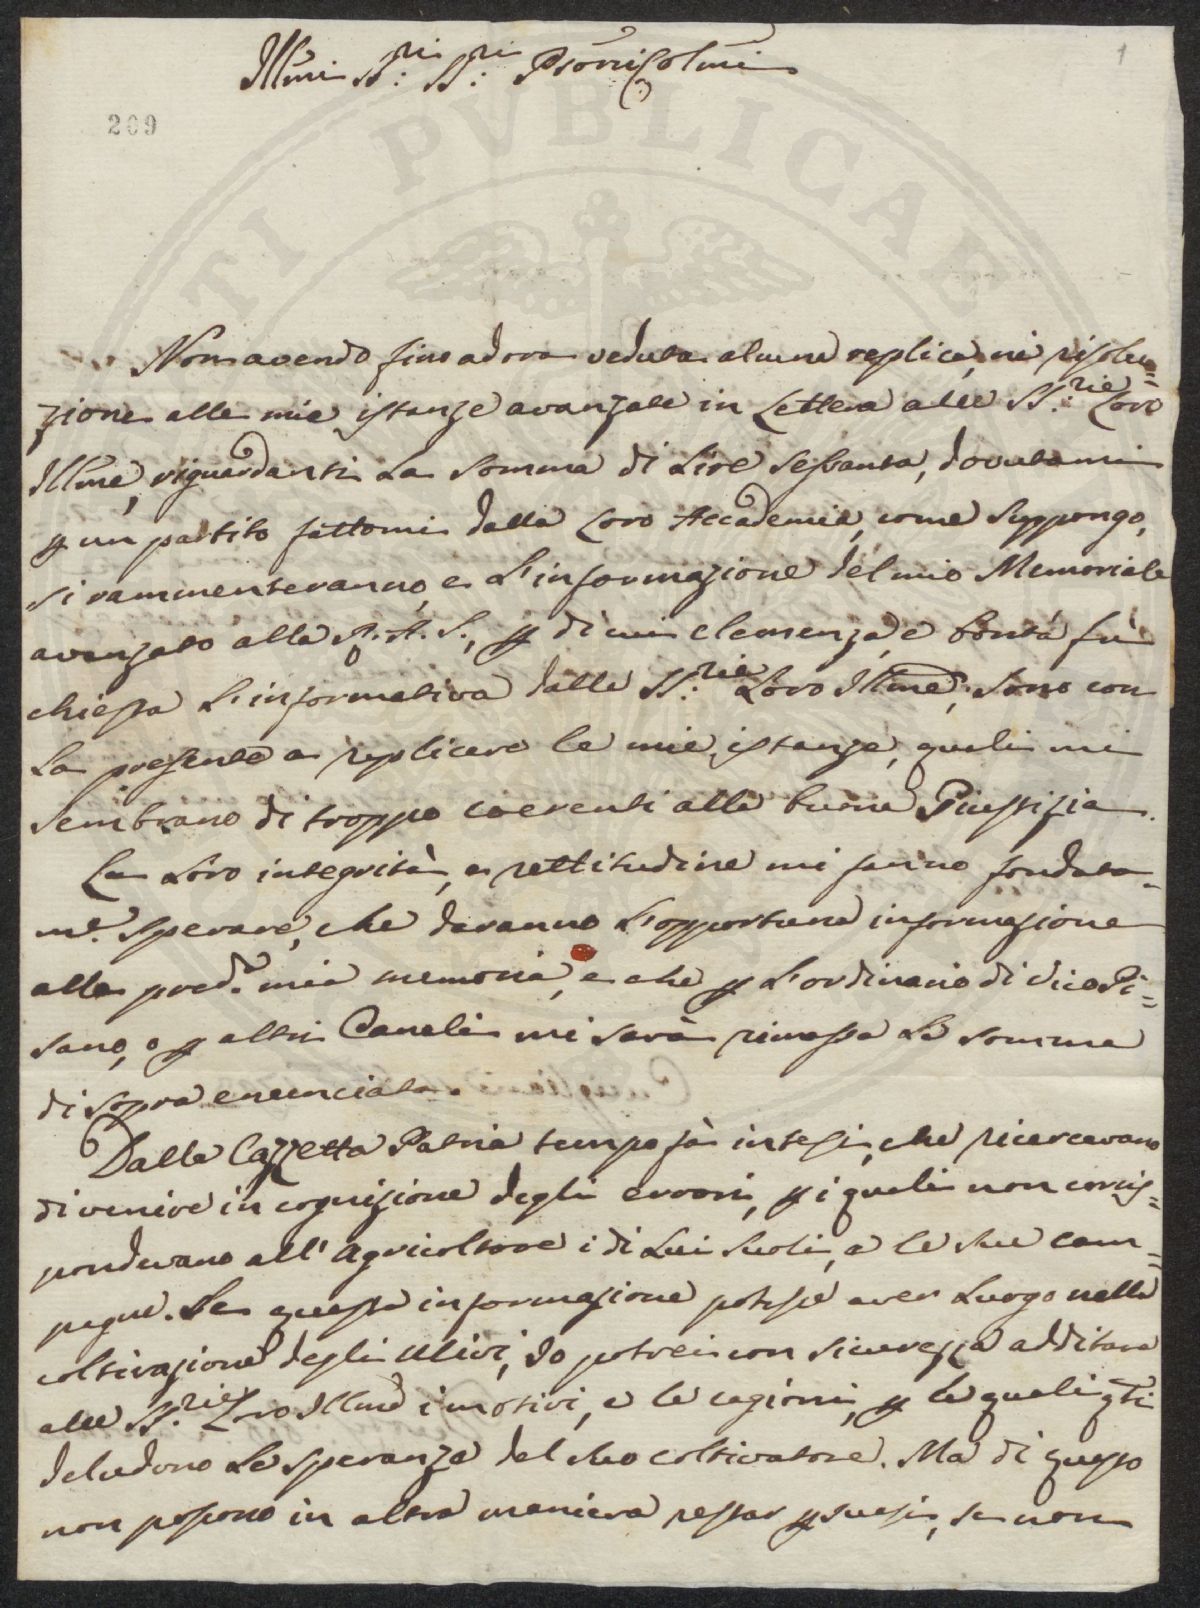 1
Illmi SS:ri SS:ri Proñi Colmi
209
Non avendo fino ad ora veduta alcuna replica, nè risolu=
zione alle mie istanze avanzate in Lettera alle SS:rie Loro
Illme, riguardanti La somma di Lire sessanta, dovutami
p un partito fattomi dalla Loro Accademia, come suppongo,
si rammenteranno, e L'informazione del mio Memoriale
avanzato alla R. A. S., p di cui clemenza, e bontà fù
chiesta L'informativa dalle SS:rie Loro Illme; sono con
La presente a replicare le mie istanze, quali mi
sembrano di troppo coerenti alla buona Giustizia.
La Loro integrità, e rettitudine mi fanno fondata=
me. sperare, che daranno L'opportuna informazione
alla pred.a mia memoria, e che p L'ordinario di Vico Pi=
sano, o p altri Canali mi sarà rimessa La somma
di sopra enunciata.
Dalla Gazzetta Patria tempo fà intesi, che ricercavano
di venire in cognizione degli errori, p i quali non corris=
pondevano all' Agricoltore i di Lui suoli, e le sue cam=
pagne. Se questa informazione potesse aver Luogo nella
coltivazione degli Ulivi, Io potrei con sicurezza additare
alle SS:rie Loro Illme i motivi, e le cagioni, p le quali qti
deludono Le speranze del suo coltivatore. Ma di questo
non possono in altra maniera restar psuasi, se non